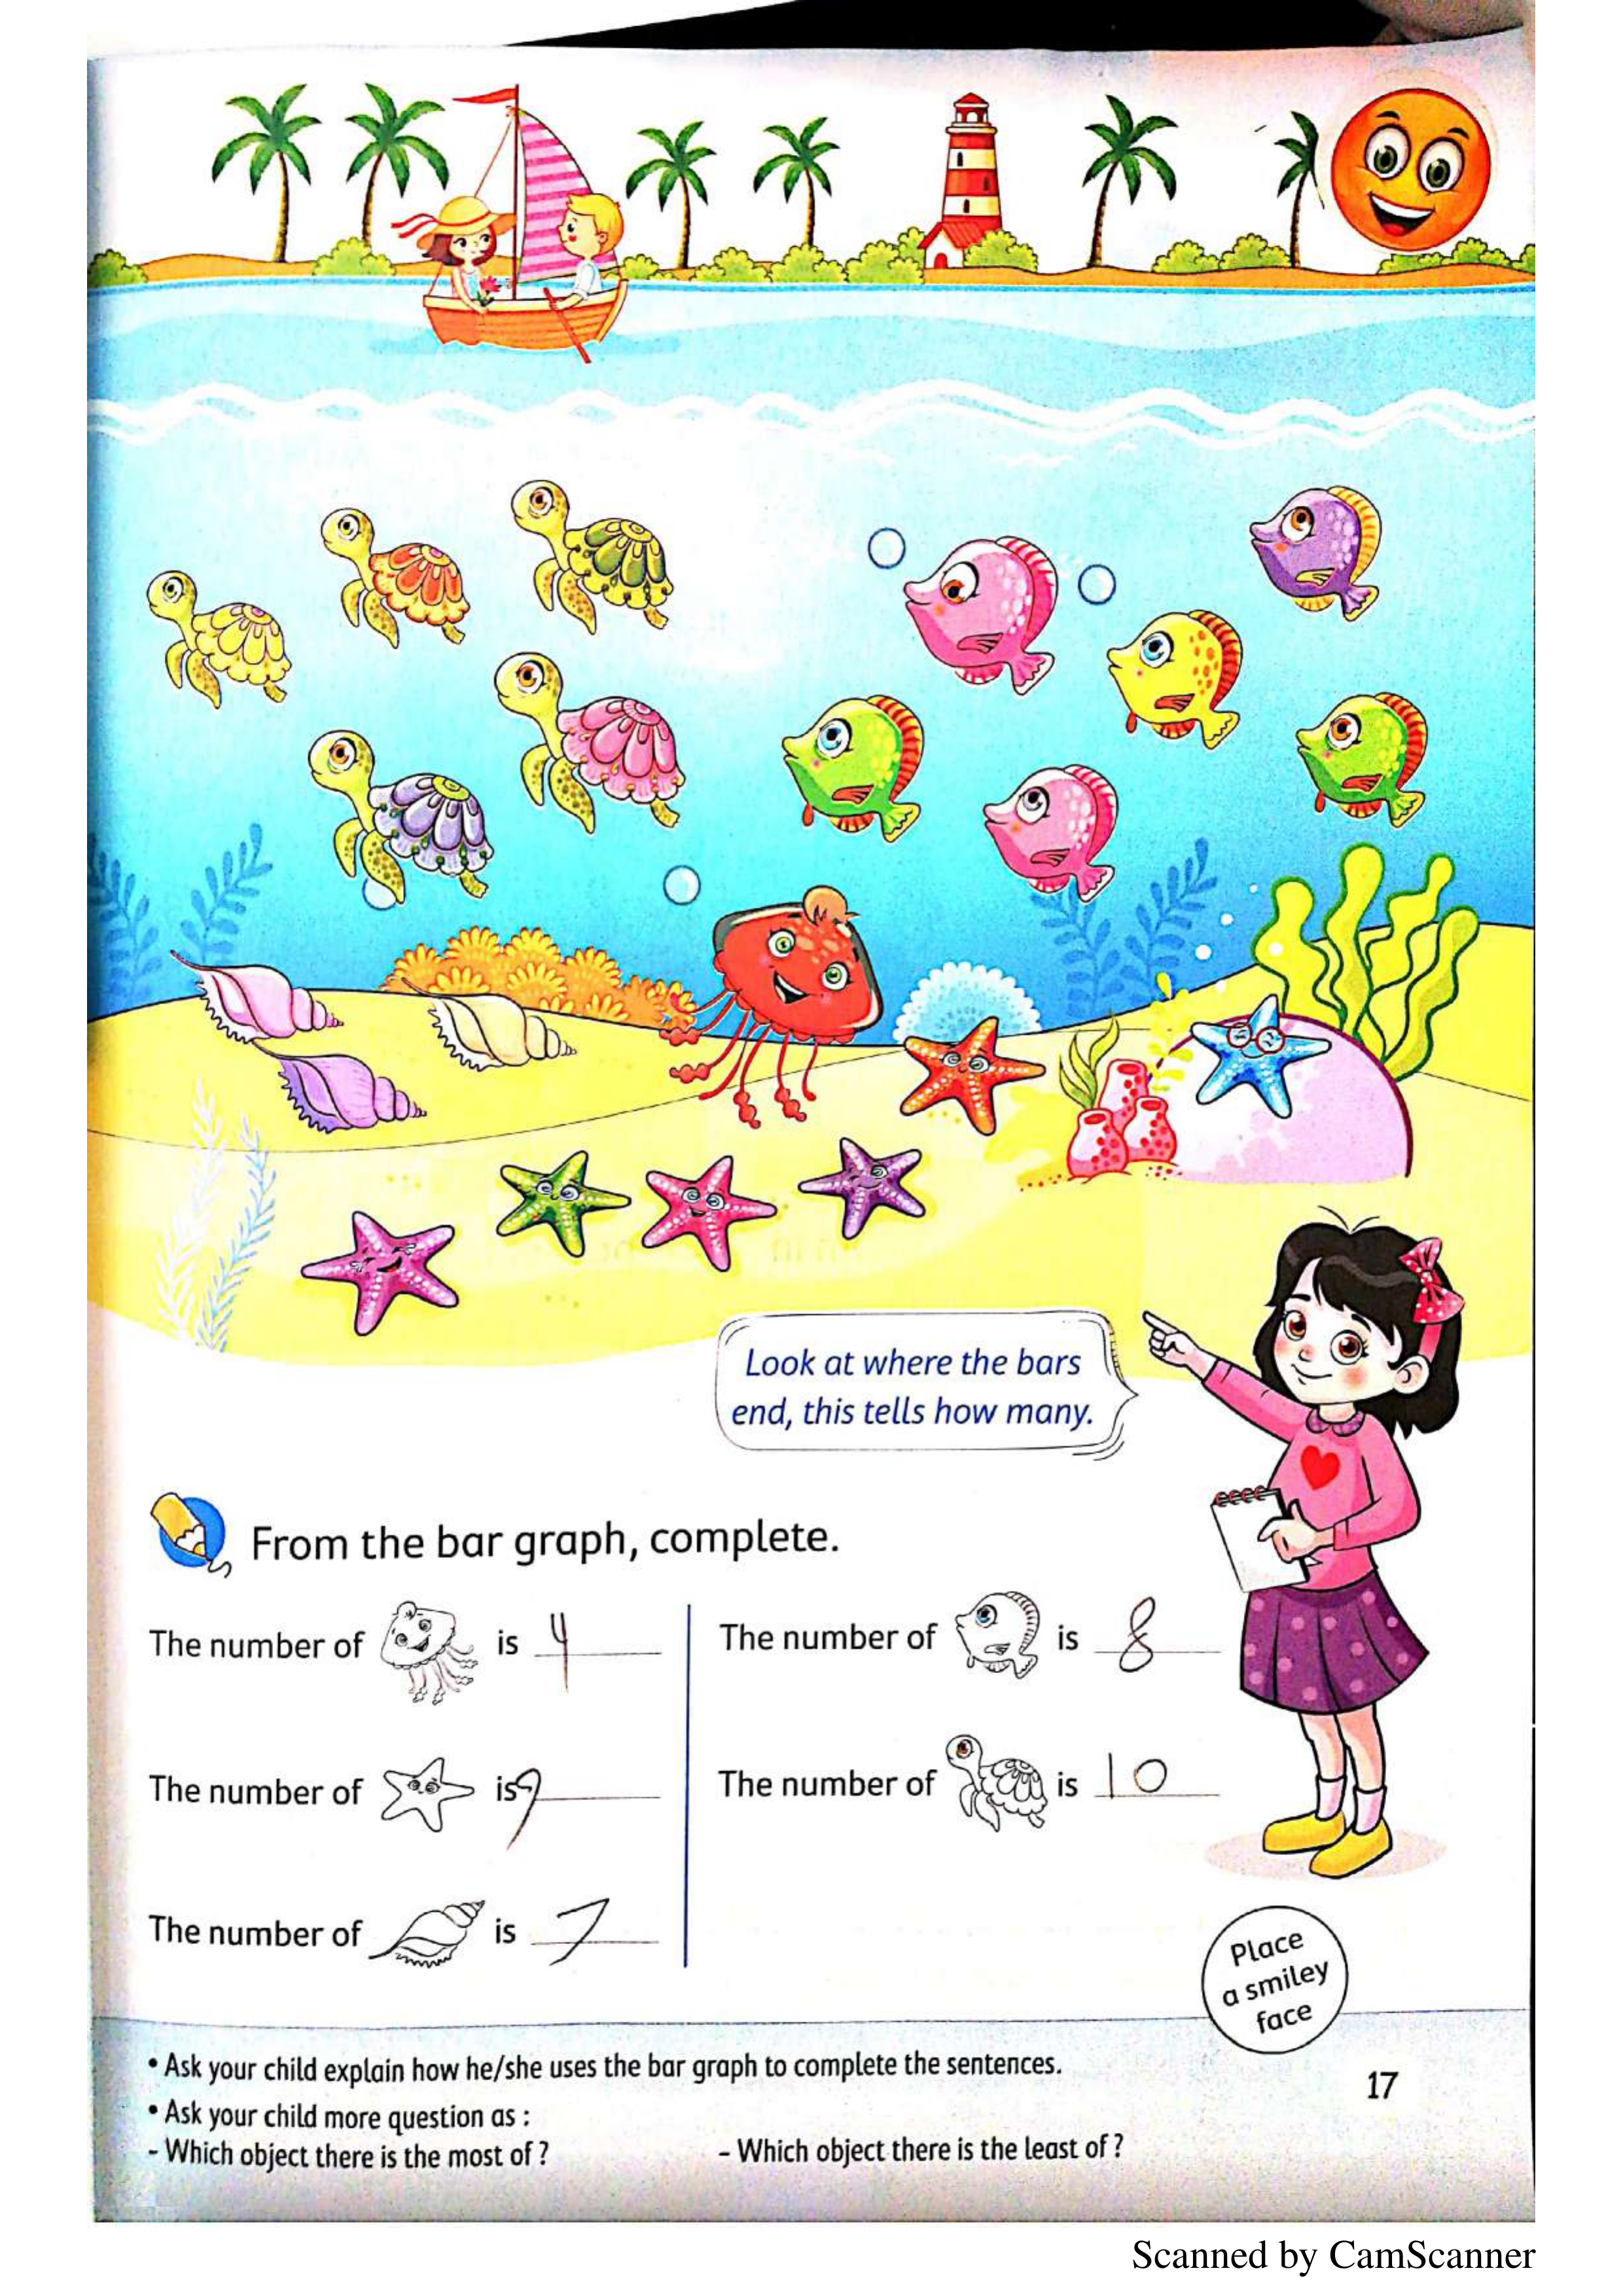 Look at where the bars
end, this tells how many.
From the bar graph, complete.
The number of is 4
The number of is 8
The number of is 9
The number of is 10
The number of is 7
Place
a smiley
face
• Ask your child explain how he/she uses the bar graph to complete the sentences.
• Ask your child more question as :
- Which object there is the most of ?
- Which object there is the least of ?
17
Scanned by CamScanner